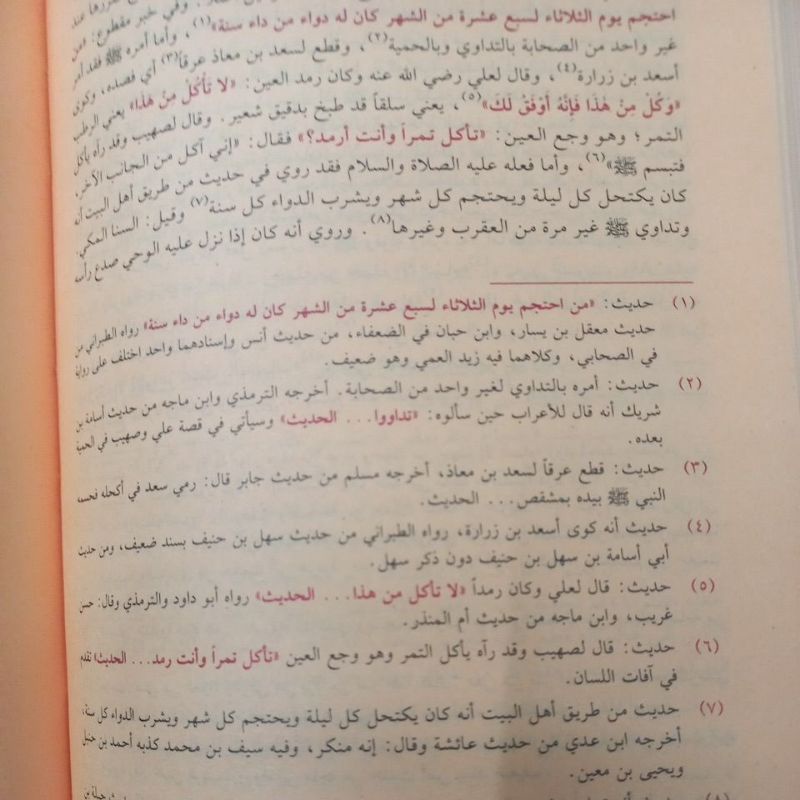 احتجم يوم الثلاثاء لسبع عشرة من الشهر كان له دواء من داء سنة»(١)، وأما أمره ﷺ فقد أمر
غير واحد من الصحابة بالتداوي وبالحمية(٢)، وقطع لسعد بن معاذ عرقاً(٣) أي فصده، وكوى
أسعد بن زرارة(٤)، وقال لعلي رضي الله عنه وكان رمد العين: «لا تَأْكُلْ مِنْ هَذَا» يعني الرطب
«وَكُلْ مِنْ هَذَا فَإِنَّهُ أَوْفَقُ لَكَ»(٥)، يعني سلقاً قد طبخ بدقيق شعير. وقال لصهيب وقد رآه يأكل
التمر؛ وهو وجع العين: «تأكل تمراً وأنت أرمد؟» فقال: «إني آكل من الجانب الآخر،
فتبسم ﷺ»(٦)، وأما فعله عليه الصلاة والسلام فقد روي في حديث من طريق أهل البيت أنه
كان يكتحل كل ليلة ويحتجم كل شهر ويشرب الدواء كل سنة(٧) وقيل: السنا المكي.
وتداوي ﷺ غير مرة من العقرب وغيرها(٨). وروي أنه كان إذا نزل عليه الوحي صدع رأسه
(١) حديث: «من احتجم يوم الثلاثاء لسبع عشرة من الشهر كان له دواء من داء سنة» رواه الطبراني من
حديث معقل بن يسار، وابن حبان في الضعفاء، من حديث أنس وإسنادهما واحد اختلف على رواية
في الصحابي، وكلاهما فيه زيد العمي وهو ضعيف.
(٢) حديث: أمره بالتداوي لغير واحد من الصحابة. أخرجه الترمذي وابن ماجه من حديث أسامة بن
شريك أنه قال للأعراب حين سألوه: «تداووا... الحديث» وسيأتي في قصة علي وصهيب في الحمية
بعده.
(٣) حديث: قطع عرقاً لسعد بن معاذ، أخرجه مسلم من حديث جابر قال: رمي سعد في أكحله فحسمه
النبي ﷺ بيده بمشقص... الحديث.
(٤) حديث أنه كوى أسعد بن زرارة، رواه الطبراني من حديث سهل بن حنيف بسند ضعيف، ومن حديث
أبي أسامة بن سهل بن حنيف دون ذكر سهل.
(٥) حديث: قال لعلي وكان رمداً «لا تأكل من هذا... الحديث» رواه أبو داود والترمذي وقال: حسن
غريب، وابن ماجه من حديث أم المنذر.
(٦) حديث: قال لصهيب وقد رآه يأكل التمر وهو وجع العين «تأكل تمراً وأنت رمد... الحديث» تقدم
في آفات اللسان.
(٧) حديث من طريق أهل البيت أنه كان يكتحل كل ليلة ويحتجم كل شهر ويشرب الدواء كل سنة،
أخرجه ابن عدي من حديث عائشة وقال: إنه منكر، وفيه سيف بن محمد كذبه أحمد بن حنبل
ويحيى بن معين.